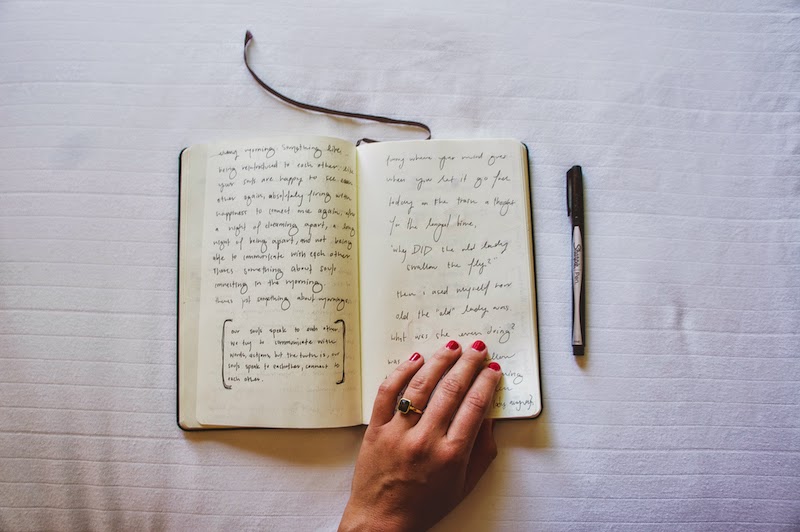 every morning. Something like
being reintroduced to each other. like
your souls are happy to see each
other again, absolutely firing with
happiness to connect once again, after
a night of dreaming apart, a long
night of being apart, and not being
able to communicate with each other.
theres something about souls
investing in the morning
theres just something about mornings.
our souls speak to each other
we try to communicate with
words, actions, but the truth is, our
souls speak to eachother, connect to
each other.
funny where your mind goes
when you let it go free
today on the train a thought
for the longest time,
"why DID she old lady
swallow the fly?"
then i asked myself how
old the "old" lady was.
what was she even doing?
was
Sharpie Pen